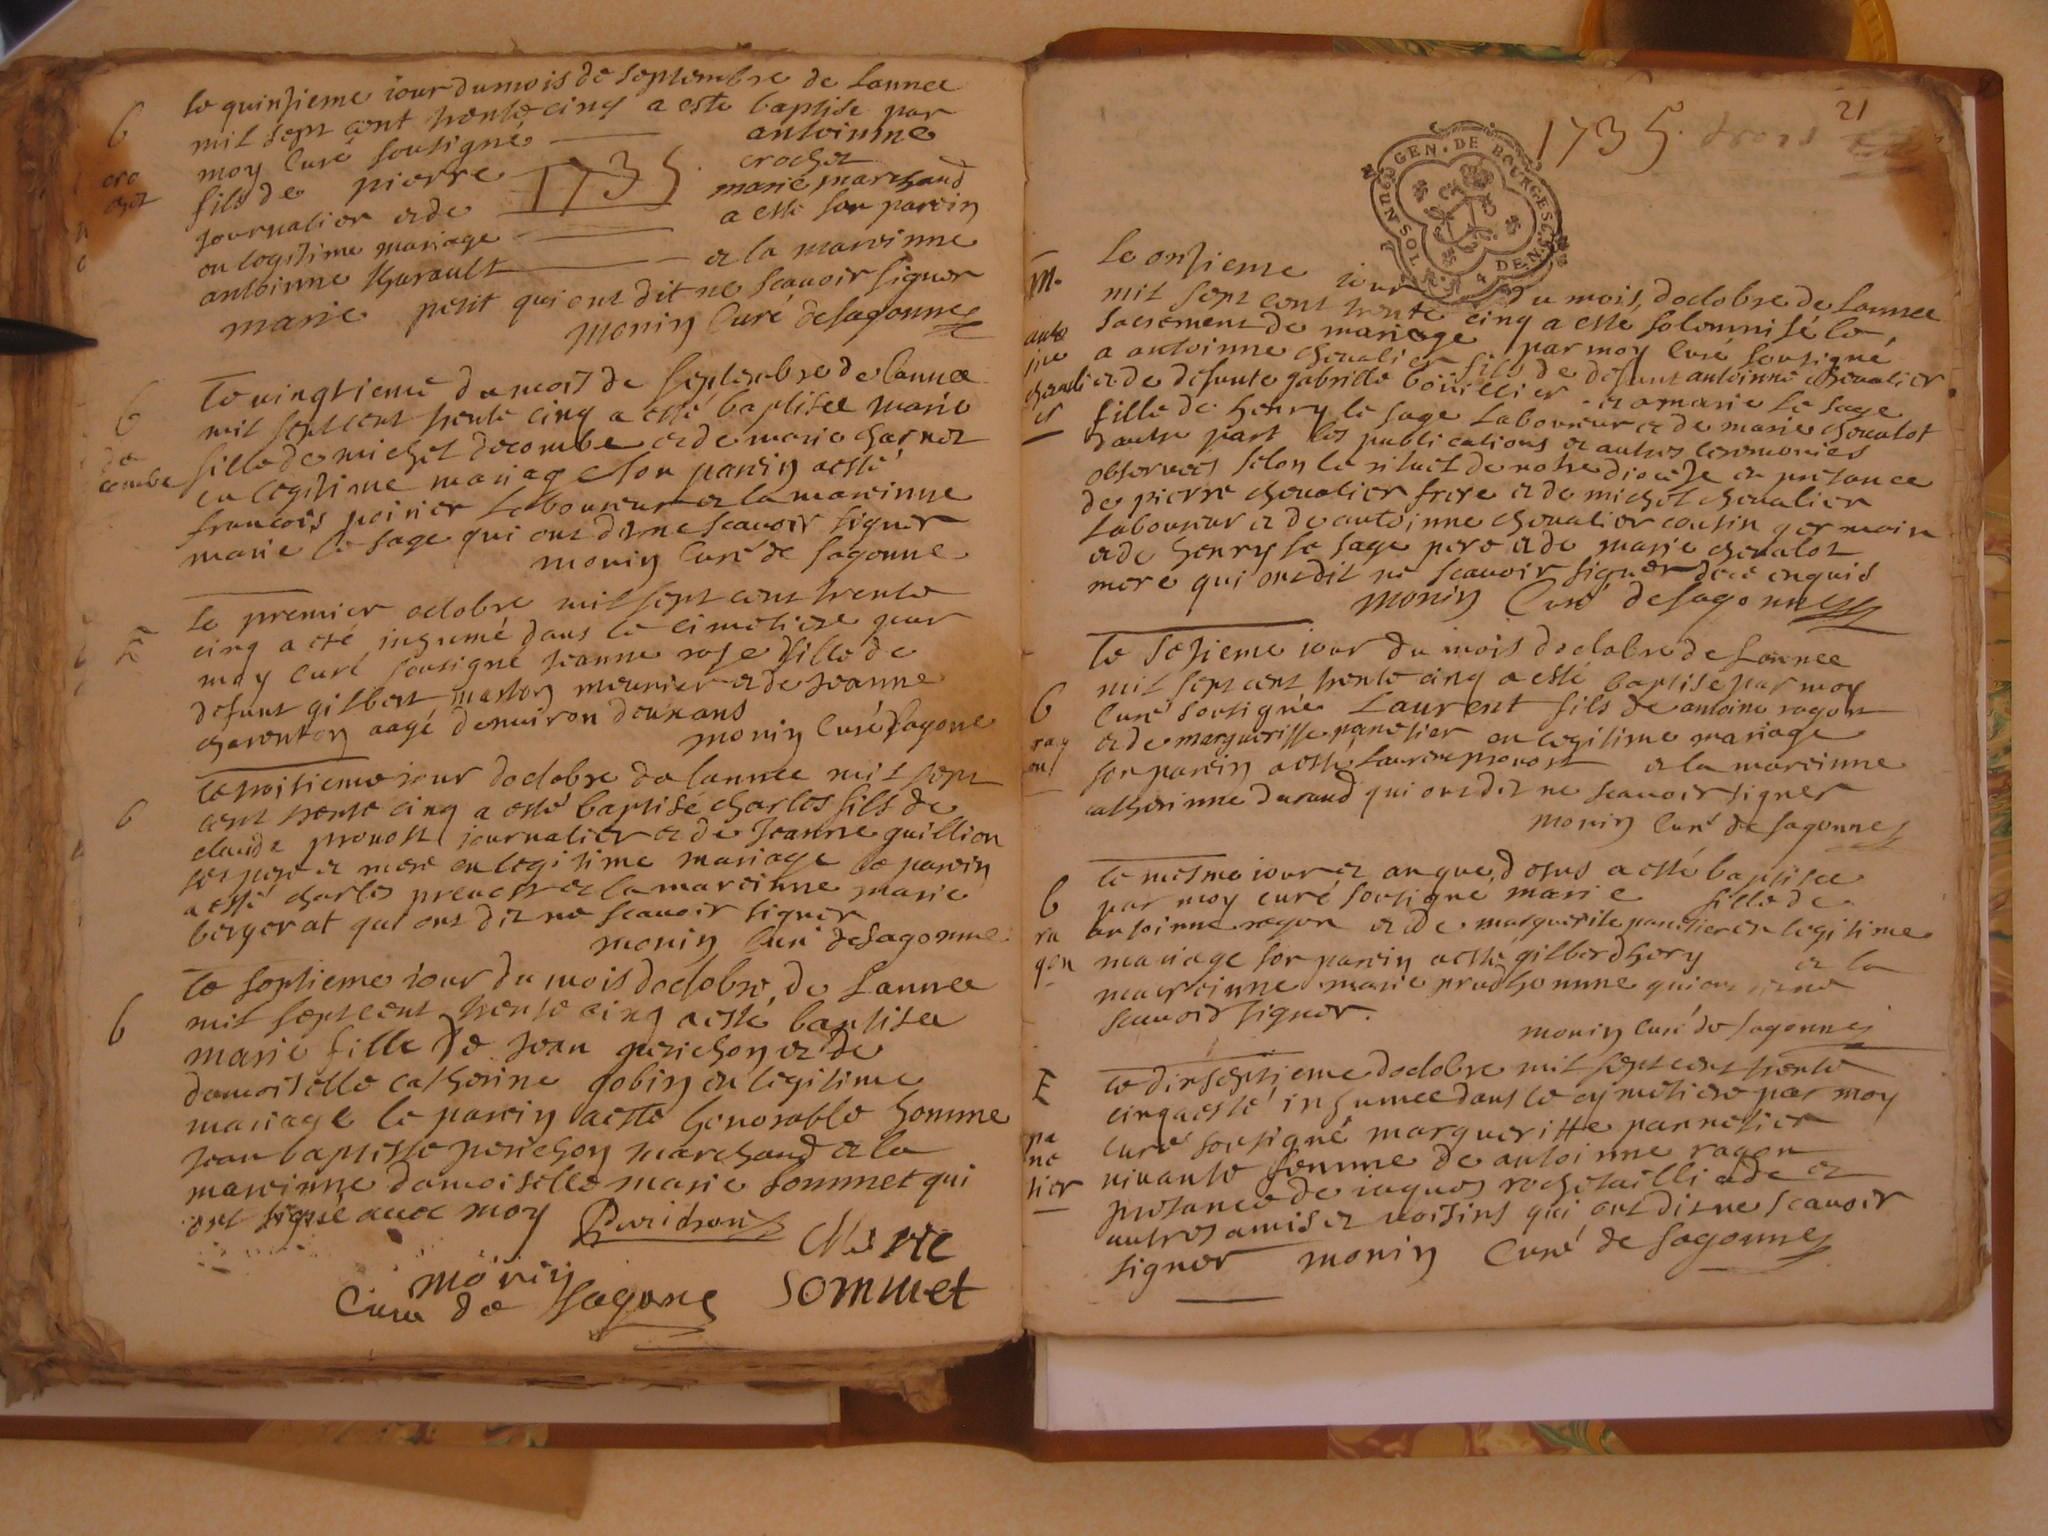 le quinzieme iour du mois de septembre de Lannee
mil sept cent trente cinq a este baptise par
moy Curé sousigné antoinne
fils de pierre crochet
1735
journalier et de marie marchand
en legitime mariage a esté son parein
antoinne et la mareinne
marie petit qui ont dit ne scauoir signer
monin Curé de sagonne
B
cro
chet
Le vingtieme du mois de septembre de lannee
mil sept cent trente cinq a esté baptisee marie
fille de michel decombe et de marie charnet
en legitime mariage son parein a esté
francois poirier Laboureur et la mareinne
marie le sage qui ont dit ne scauoir signer
monin Curé de sagonne
B
de
combe
Le premier octobre mil sept cent trente
cinq a eté inhumé dans le cimetiere par
moy Curé sousigné jeanne rose fille de
defunt gilbert marton meunier et de jeanne
charenton aagé denuiron deux ans
monin Curé sagone
E
Le troisieme iour doctobre de lannee mil sept
cent trente cinq a esté baptisé charles fils de
claude prouost journalier et de Jeanne guillion
ses pere et mere en legitime mariage le parein
a esté charles preuost et la mareinne marie
bergerat qui ont dit ne scauoir signer
monin Curé de sagonne
B
Le septieme iour du mois doctobre de Lannee
mil sept cent trente cinq a esté baptisee
marie fille de jean perichon et de
damoiselle catherine gobin en legitime
mariage le parein a esté honorable homme
jean baptiste perichon marchand et la
mareinne damoiselle marie sommet qui
ont signé auec moy
B
Marie
monin
Curé de sagone Sommet
21
1735. trois
GEN. DE BOURGES
Le onzieme iour du mois doctobre de Lannee
mil sept cent trente cinq a esté solemnisé le
sacrement de mariage par moy Curé sousigné
a antoinne cheualier fils de defunt antoinne cheualier
et de defunte gabrielle boüillier et a marie le sage
fille de henry le sage Laboureur et de marie cheualot
dautre part les publications et autres ceremonies
obseruees selon le rituel de notre diocese en presance
de pierre cheualier frere et de michel cheualier
Laboureur et de antoinne cheualier cousin germain
et de henry le sage pere et de marie cheualot
mere qui ont dit ne scauoir signer de ce enquis
monin Curé de sagonne
m.
anto
ine
cheuali
er
Le sezieme iour du mois doctobre de Lannee
mil sept cent trente cinq a esté baptisé par moy
Curé sousigné Laurent fils de antoine ragon
et de margueritte panetier en legitime mariage
son parein a esté Laurent preuost et la mareinne
catherinne durand qui ont dit ne scauoir signer
monin Curé de sagonne
B
rag
on
Le mesme iour et an que desus a esté baptisee
par moy curé sousigné marie fille de
antoinne ragon et de marguerite panetier en legitime
mariage son parein a esté gilberd hery et la
mareinne marie prudhomme qui ont dit ne
scauoir signer.
monin Curé de sagonne
B
ra
gon
Le dixseptieme doctobre mil sept cent trente
cinq a esté inhumee dans le cymetiere par moy
Curé sousigné margueritte pannetier
viuante femme de antoinne ragon
presance de iaques rochetaillade et
autres amis et voisins qui ont dit ne scauoir
signer monin Curé de sagonne
E
pa
ne
tier